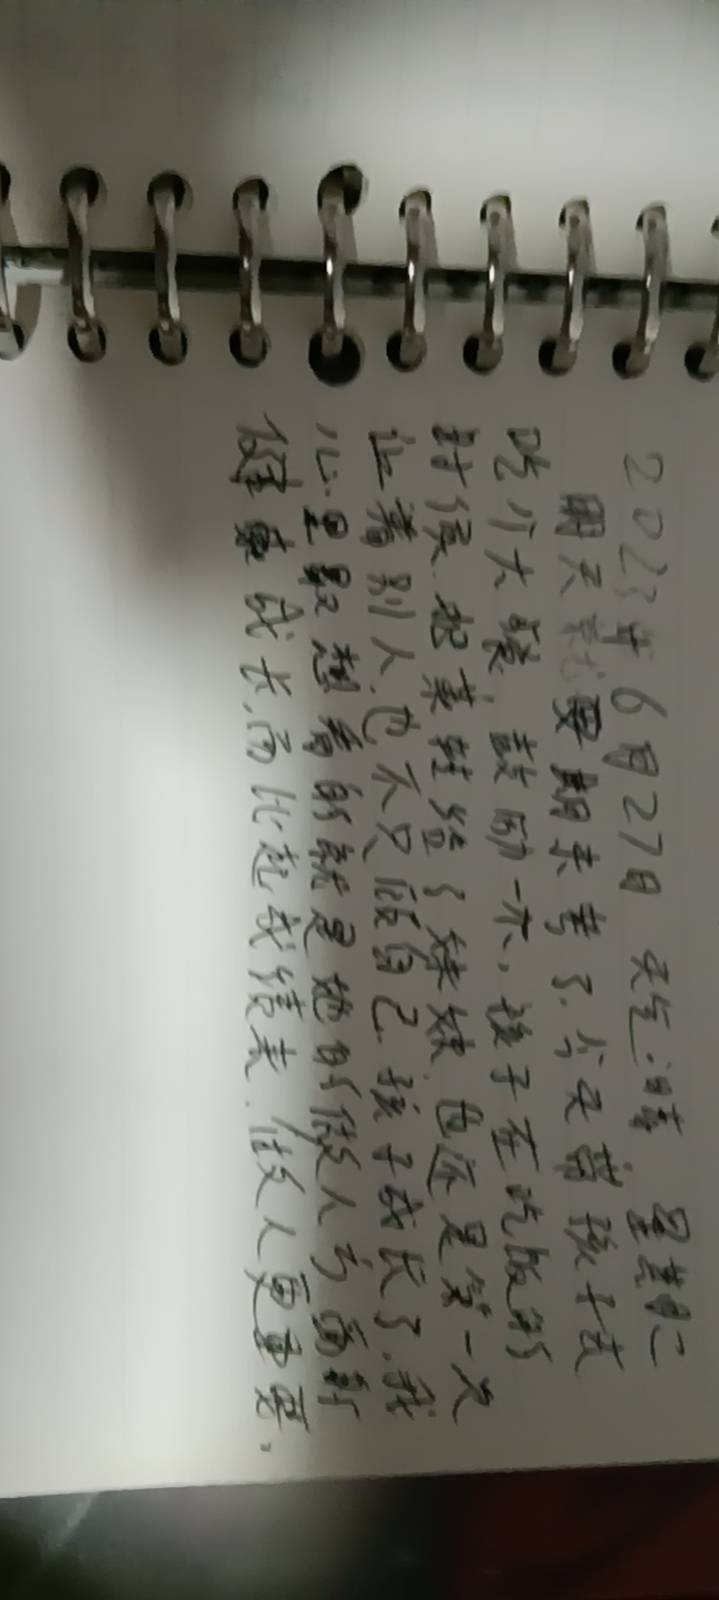 2023年6月27日 天气:晴 星期二
明天就要期末考了.今天带孩子去
吃个大餐,鼓励一下,孩子在吃饭的
时候.把某鞋给了妹妹.也还是第一次
让着别人.也不只顾自己.孩子成长了.我
心里最想看的就是她的做人方面
健康成长,而比起成绩来.做人更重要。